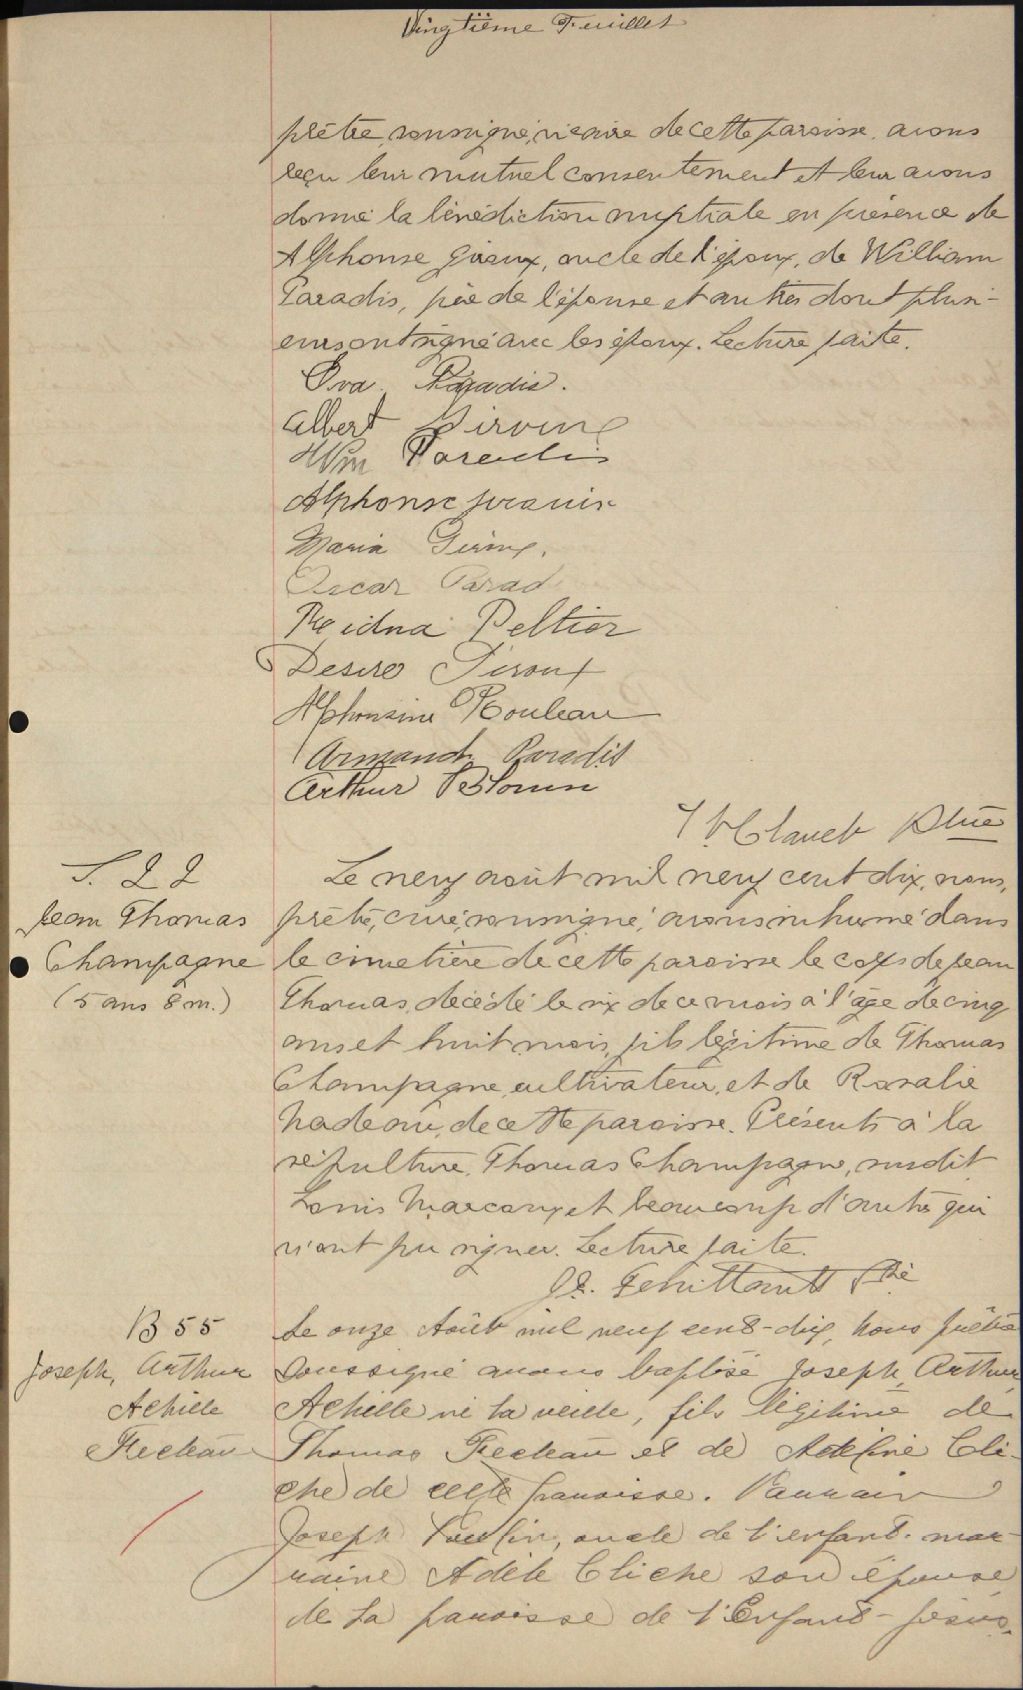 Vingtième Feuillet
prêtre, soussigné, vicaire de cette paroisse, avons
reçu leur mutuel consentement et leur avons
donné la bénédiction nuptiale en présence de
Alphonse Giroux, oncle de l'époux, de William
Paradis, père de l'épouse et autres dont plusi-
eurs ont signé avec les époux. Lecture faite.
Eva Paradis.
Albert Giroux
Wm Paradis
Alphonse Giroux
Maria Giroux.
Oscar Parad
Peltier
Desire Giroux
Alphonsine Rouleau
Armand Paradis
Arthur Blouin
Ptre
S. 22
Jean Thomas
Champagne
(5 ans 8 m.)
Le neuf août mil neuf cent dix, nous,
prêtre, curé, soussigné, avons inhumé dans
le cimetière de cette paroisse le corps de Jean
Thomas, décédé le six de ce mois à l'âge de cinq
ans et huit mois, fils légitime de Thomas
Champagne, cultivateur, et de Rosalie
Nadeau, de cette paroisse. Présents à la
sépulture, Thomas Champagne, susdit
Louis Marcoux et beaucoup d'autres qui
n'ont pu signer. Lecture faite.
Ptre
B 55
Joseph, Arthur
Achille
Fecteau
Le onze Août mil neuf cent-dix, Nous prêtre
soussigné avons baptisé Joseph, Arthur,
Achille né la veille, fils légitime de
Thomas Fecteau et de Adeline Cli-
che de cette paroisse. Parrain
Joseph Poulin, oncle de l'enfant. mar-
raine Adèle Cliche son épouse
de la paroisse de l'Enfant-Jésus.